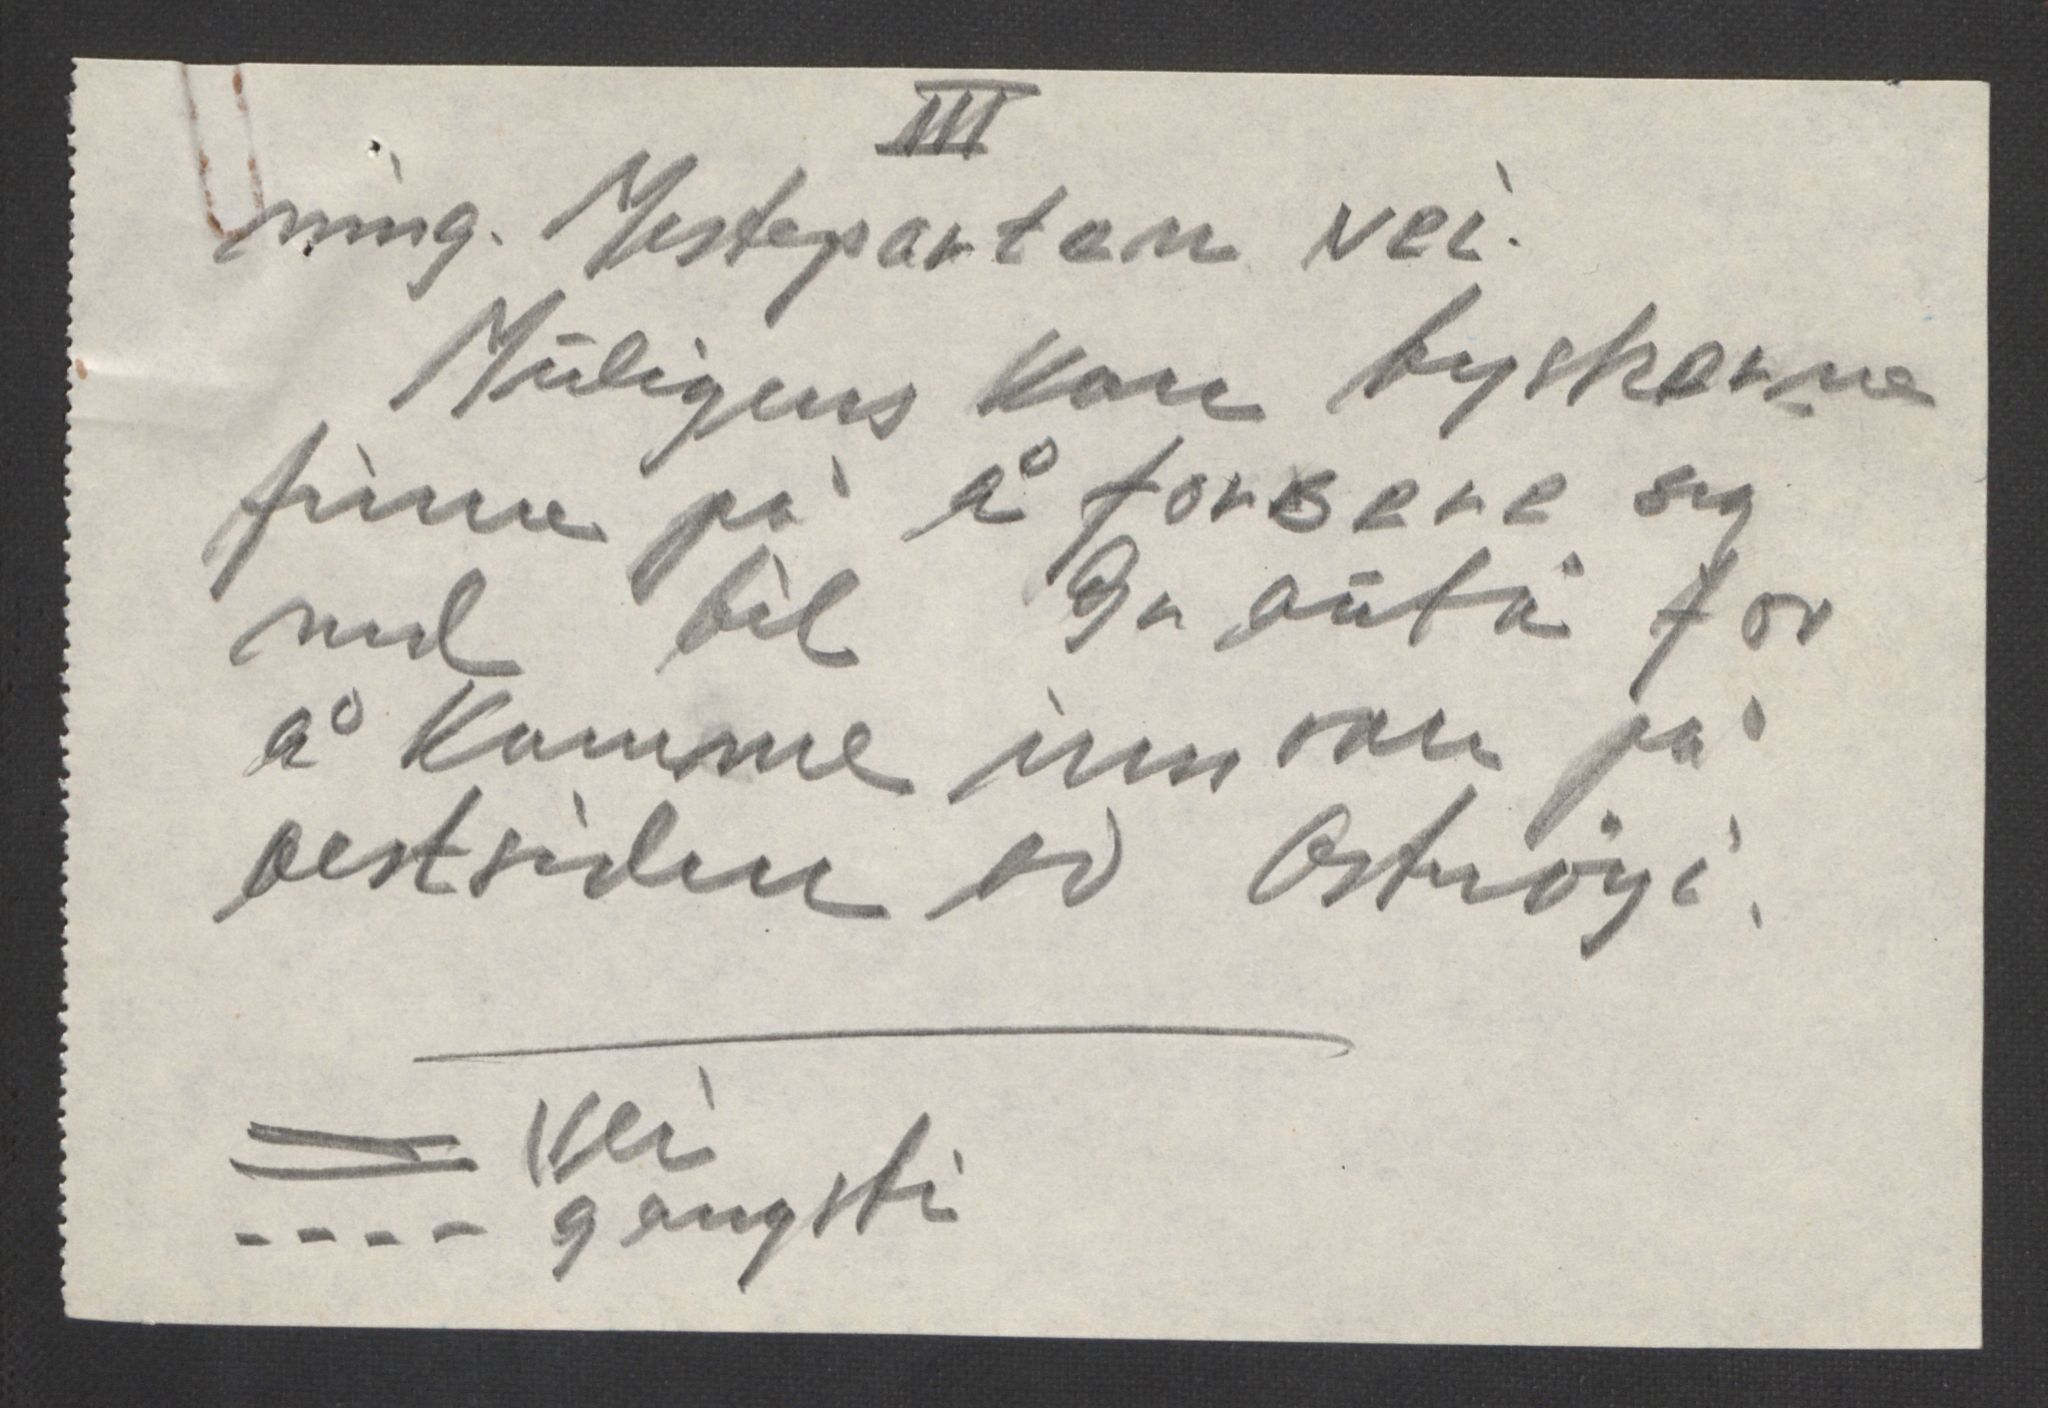 III
ning. Mesteparten vei.
Muligens kan tyskerne
finne på å forsere sig
ned til Grautå for
å komme innom på
vestsiden av Ostrøyi.
vei
gangsti